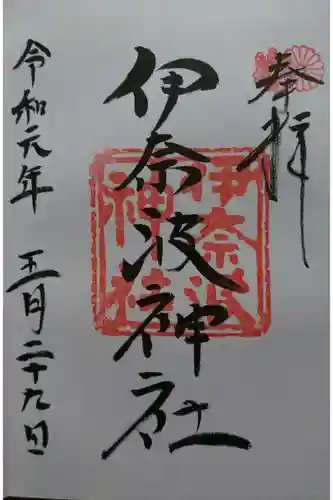 奉拝
伊奈波神社
伊奈波
神社
令和元年 五月二十九日